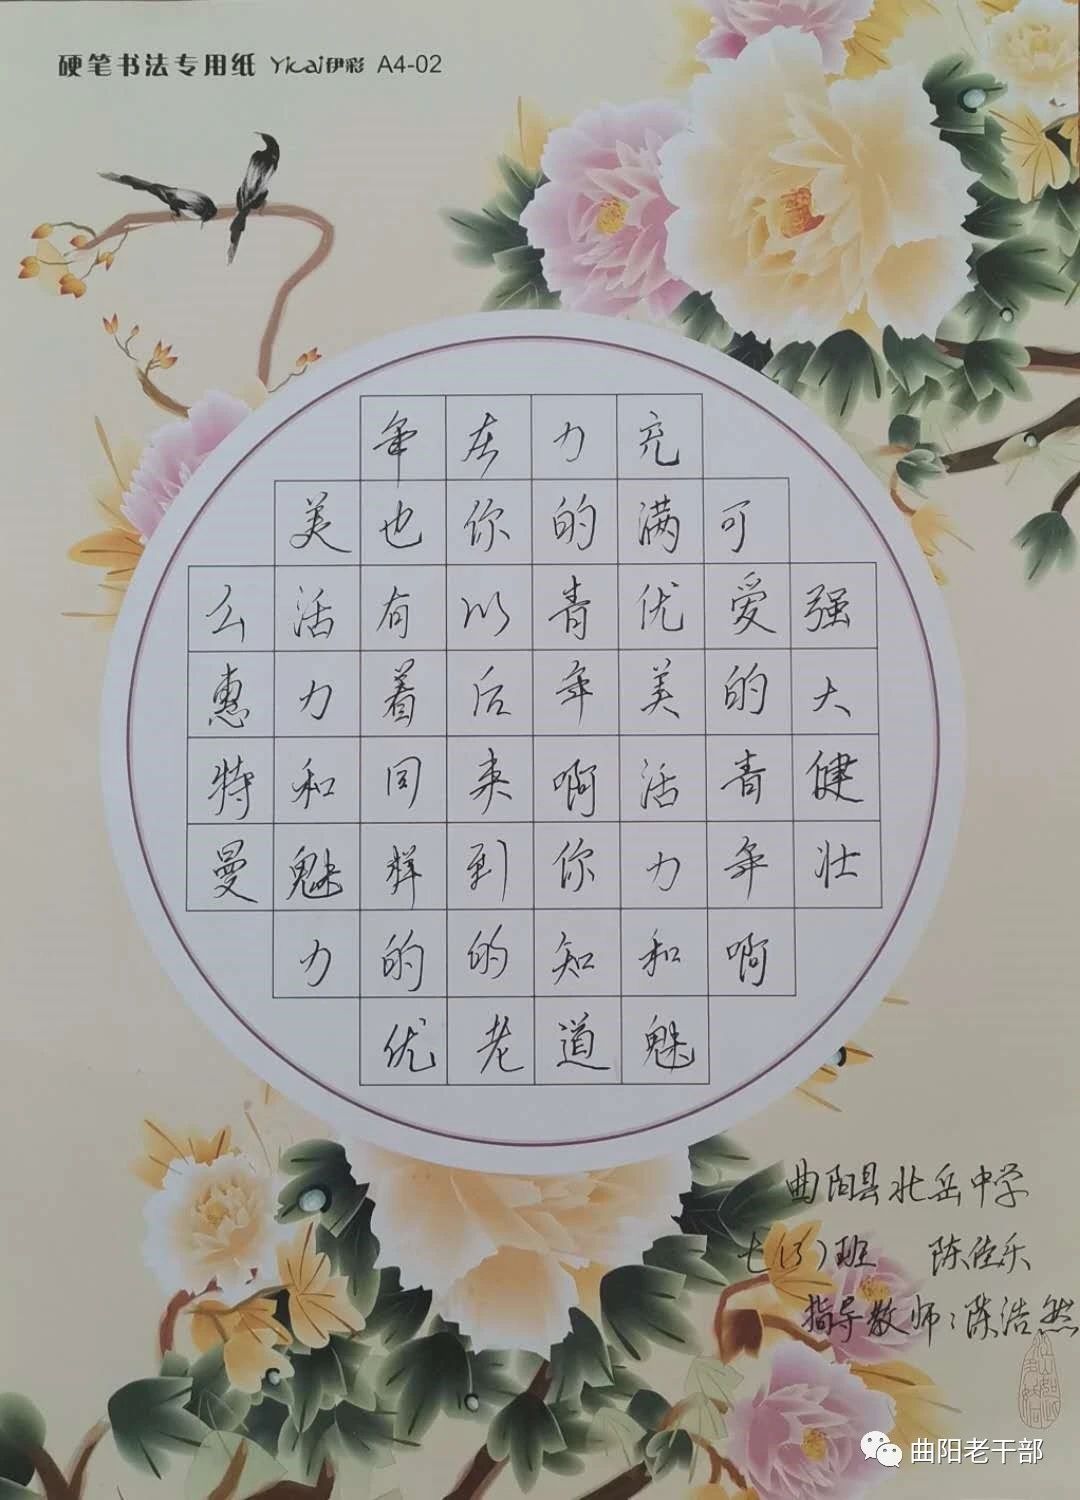 硬笔书法专用纸 Yicai伊彩 A4-02
强大健壮
可爱的青年啊
充满优美活力和魅
力的青年啊你知道
在你以后来到的老
年也有着同样的优
美活力和魅力
么惠特曼
曲阳县北岳中学
七(3)班 陈佳乐
指导教师:陈浩然
曲阳老干部